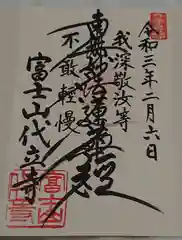 令和三年二月六日
我深敬汝等
南無妙法蓮華経
不敢軽慢
富士山代立寺